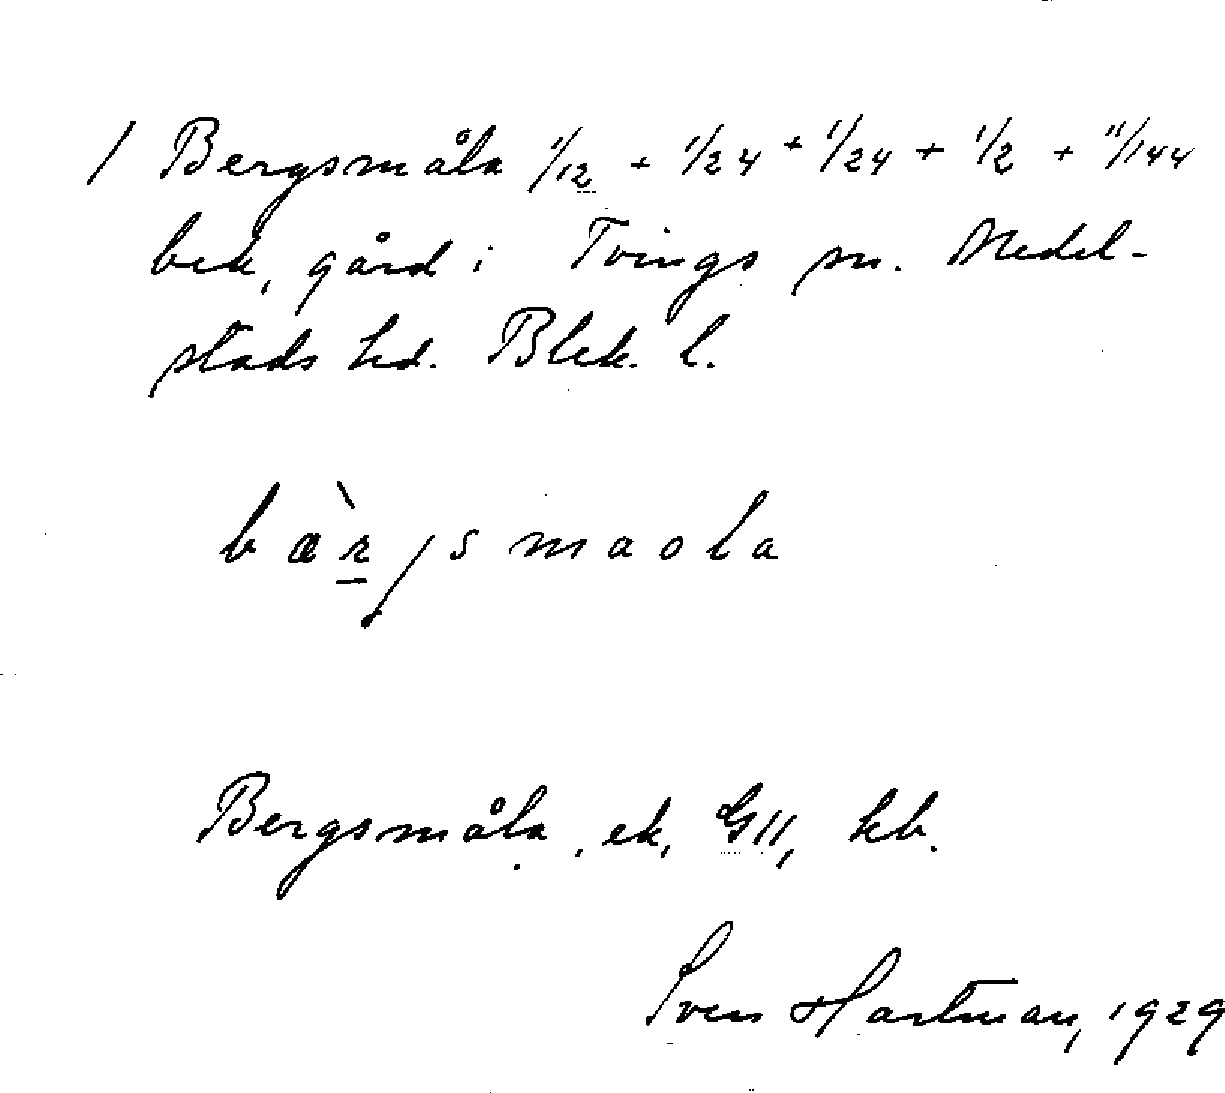 / Bergsmåla 1/12 + 1/24 + 1/24 + 1/2 + 11/144
bek, gård i Tvings sn. Medel-
stads hd. Blek. l.
bæ̀r̲ʃsmaola
Bergsmåla, ek, GII, kb.
Sven Hartman, 1929